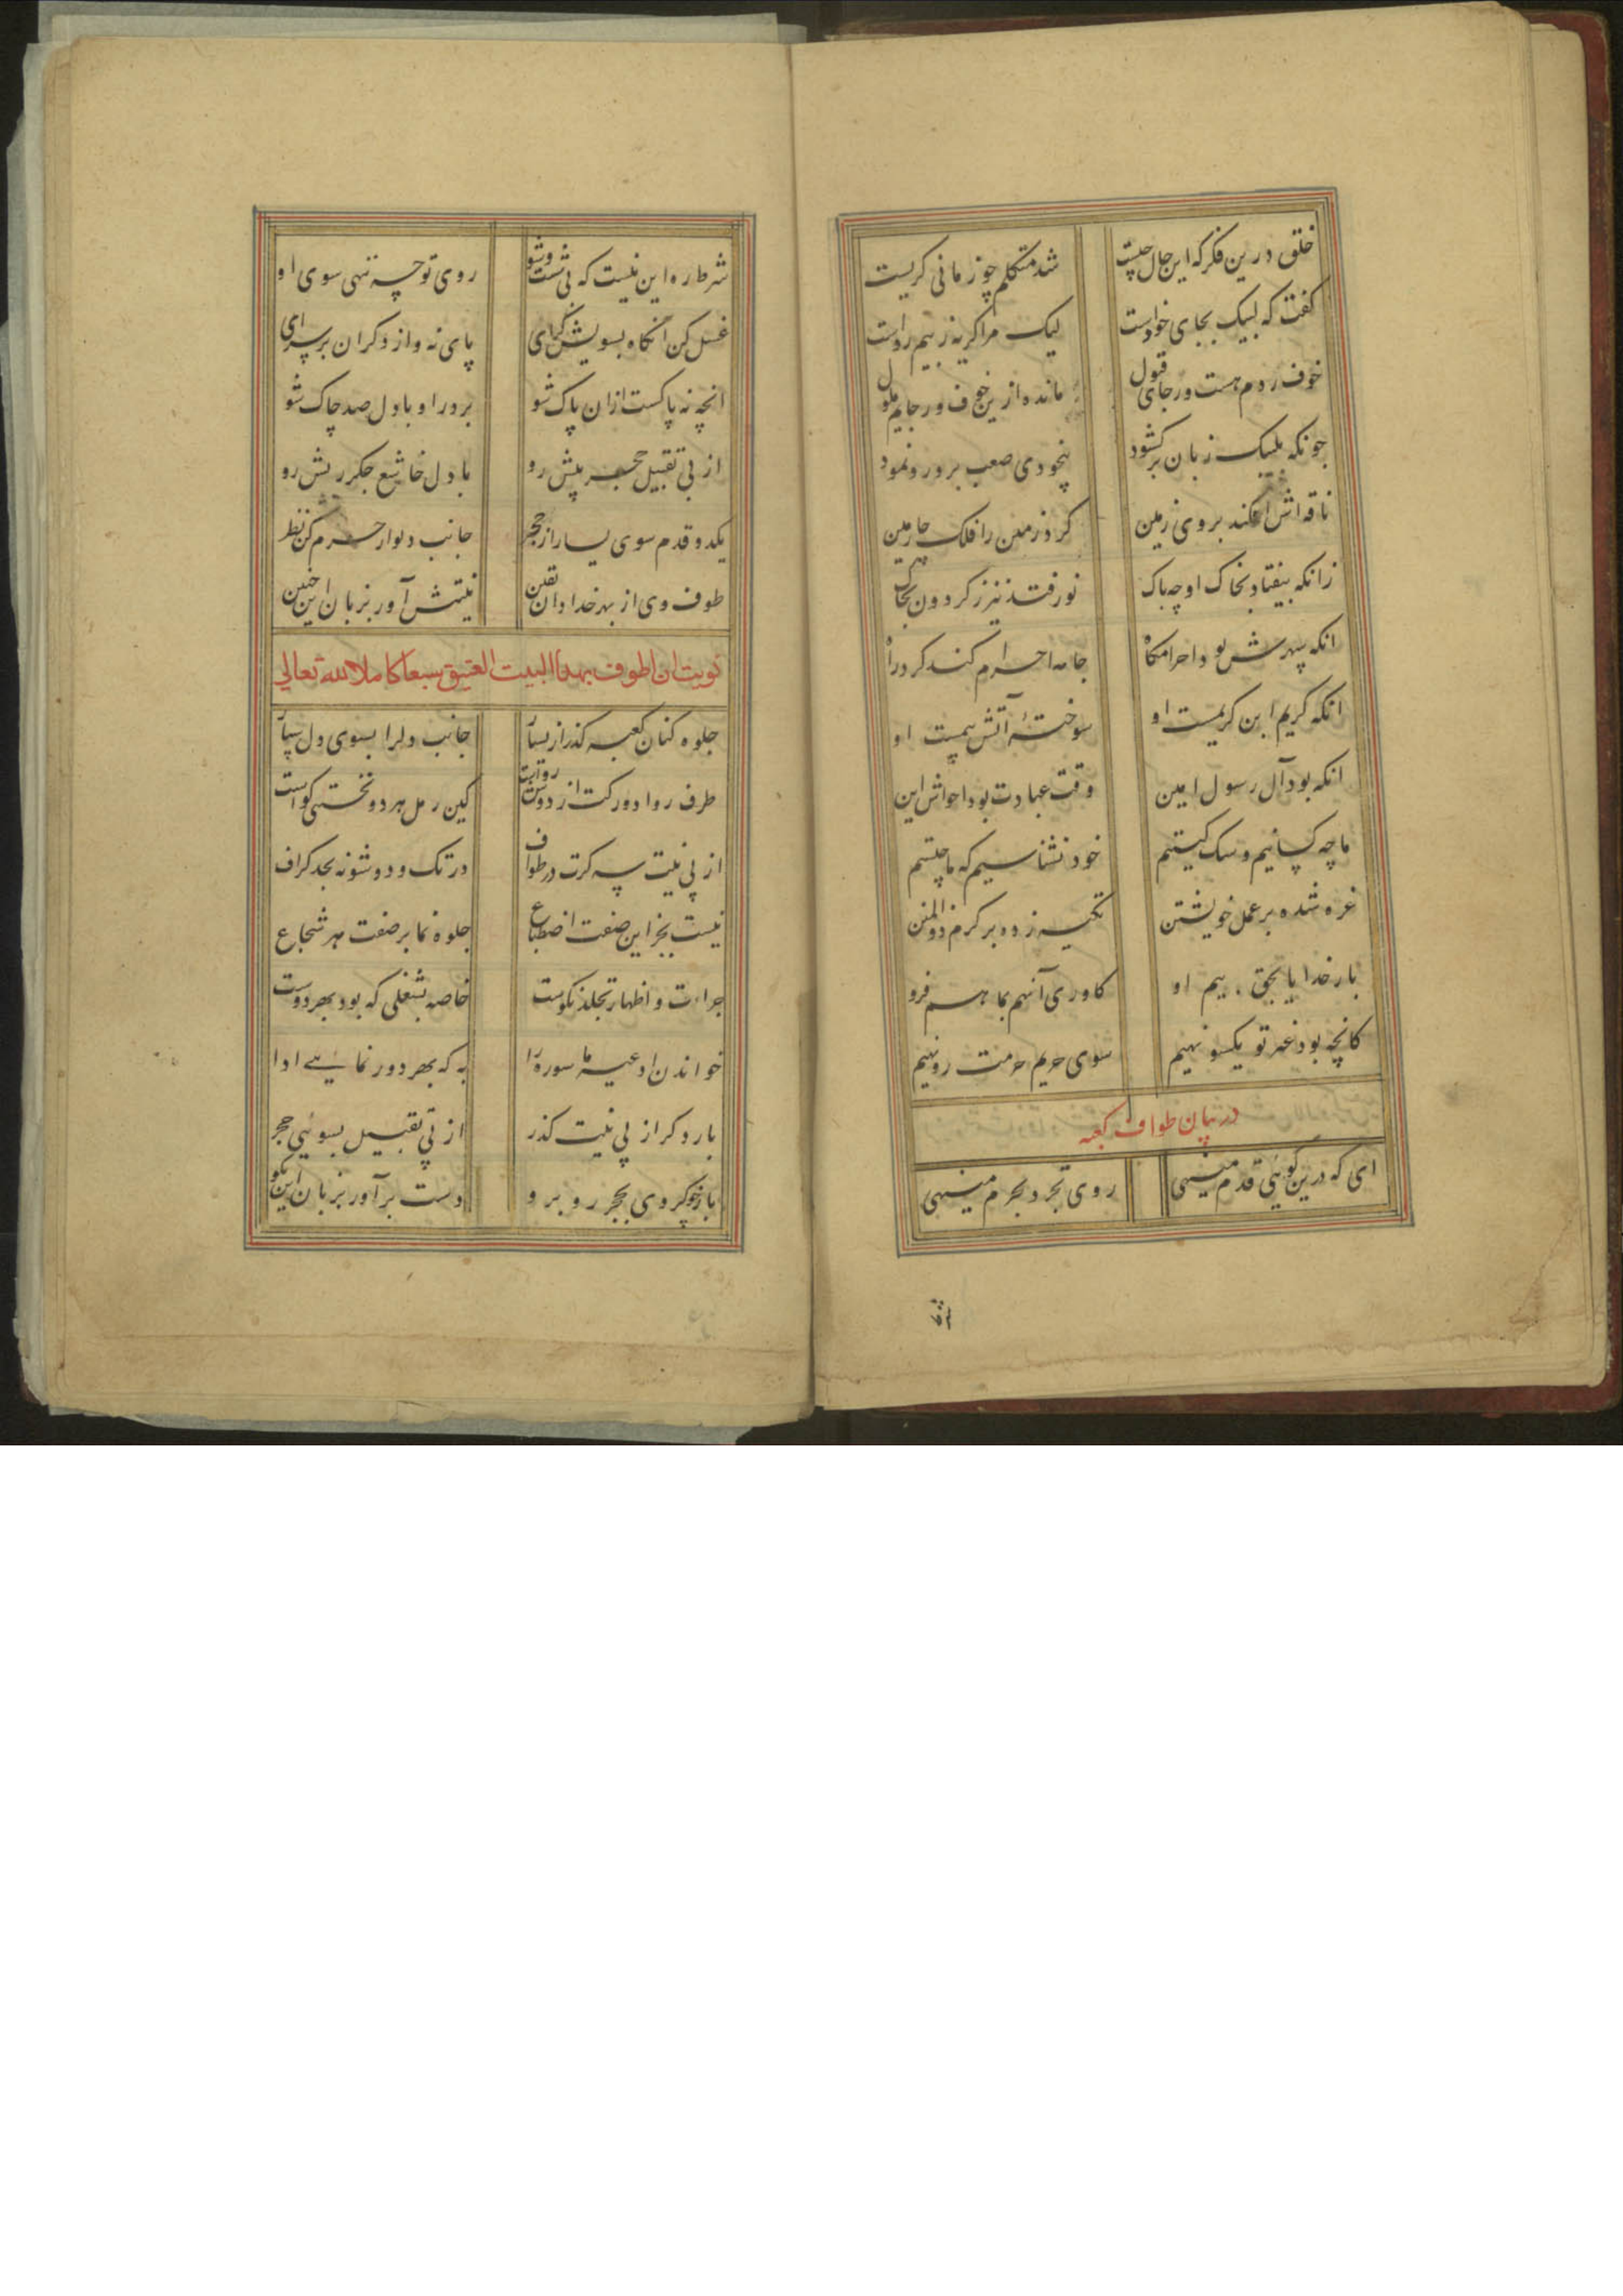 خلق درین فکر که این حال چیست
شد متکلم چو زمانی کریست
کفت که لبیک بجای خوداست
لیک مرا کریه ز بیم رداست
خوف ردم هست و رجای قبول
مانده ازین خوف و رجایم ملول
چونکه بلبیک زبان برکشود
بیخودی صعب برو رو نمود
ناقه اش افکند بروی زمین
کرد زمین را فلک چارمین
زانکه بیفتاد بخاک او چه باک
نور فتد نیز ز کردون بخاک
انکه سپهرش بود احرامکاه
جامه احرام کند کرد راه
انکه کریم ابن کریمست او
سوخته آتش بیمست او
انکه بود آل رسول امین
وقت عبادت بود احوالش این
ما چه کسانیم و سک کیستیم
خود نشناسیم که ما چیستیم
غره شده بر عمل خویشتن
تکیه زده بر کرم ذوالمنن
بار خدایا بحق بیم او
کاوری آنهم بما هم فرو
کانچه بود غیر تو یکسو نهیم
سوی حریم حرمت رو نهیم
در بیان طواف کعبه
ای که درین کوئی قدم مینهی
روی تجرد بحرم مینهی
شرط ره این نیست که بی شست و شو
روی توجه ننهی سوی او
غسل کن آنکاه بسویش کرای
پای نه و از دکران بر سر آی
انچه نه پاکست ازان پاک شو
بر در او با دل صد چاک شو
از پی تقبیل حجر پیش رو
با دل خاشع جکر ریش رو
یکدو قدم سوی یسار از حجر
جانب دیوار حرم کن نظر
طوف وی از بهر خدا دان یقین
نیتش آور بزبان این چنین
نویت ان اطوف بهذا البیت العتیق سبعا کاملا لله تعالی
جلوه کنان کعبه کذر از یسار
جانب دلرا بسوی دل سپار
طرف ردا دورکت از دوش راست
کین رمل هر دو نخستی کواست
از پی نیت سه کرت در طواف
در تک و دو شو نه بحد کراف
نیست بجز این صفت اضطباع
جلوه نما بر صفت هر شجاع
جراءت و اظهار تجلد نکوست
خاصه بشغلی که بود بهر دوست
خواندن ادعیه ما سوره را
به که بهر دور نمایی ادا
بار دکر از پی نیت کذر
از پی تقبیل بسوئی حجر
باز چو کردی بحجر رو برو
دست برآور بزبان این بکو